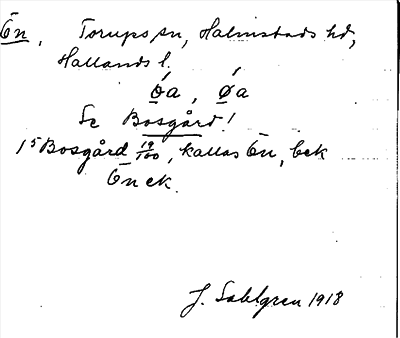 Ön, Torups sn, Halmstads hd,
Hallands l.
ó̲a, Ǿ̲a
Se Bosgård!
15 Bosgård 19/100, kallas Ön, bek
Ön ek.
J. Sahlgren 1918